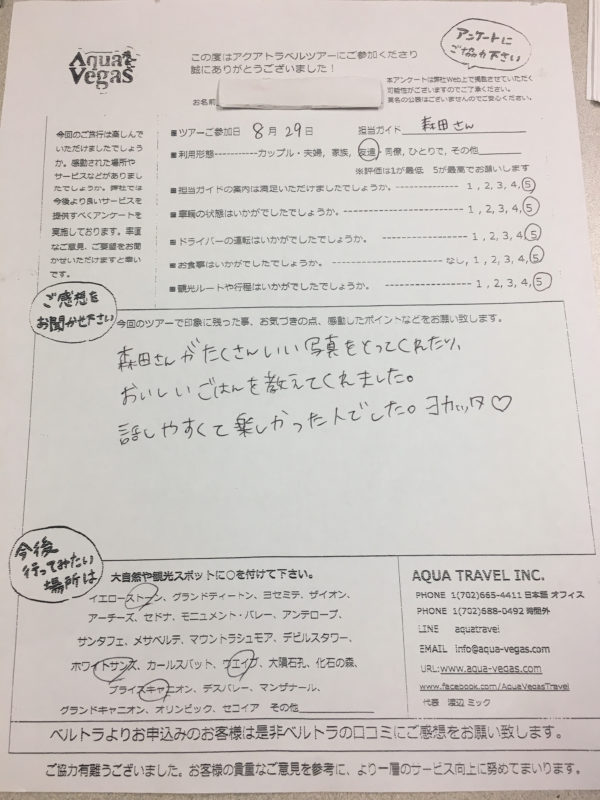 Aqua Vegas
この度はアクアトラベルツアーにご参加くださり
誠にありがとうございました！
アンケートに
ご協力下さい
本アンケートは弊社Web上で掲載させていただく
可能性がございますのでご了承ください。
実名の公表はございませんのでご安心ください。
お名前
今回のご旅行は楽しんで
いただけましたでしょう
か。感動された場所や
サービスなどがありまし
たでしょうか。弊社では
今後より良いサービスを
提供すべくアンケートを
実施しております。率直
なご意見、ご要望をお聞
かせいただけますと幸い
です。
■ツアーご参加日 8月29日 担当ガイド 森田さん
■利用形態-----------カップル・夫婦, 家族, 友達・同僚, ひとりで, その他
※評価は1が最低 5が最高でお願いします
■担当ガイドの案内は満足いただけましたでしょうか。 1, 2, 3, 4, 5
■車輌の状態はいかがでしたでしょうか。 1, 2, 3, 4, 5
■ドライバーの運転はいかがでしたでしょうか。 1, 2, 3, 4, 5
■お食事はいかがでしたでしょうか。 なし, 1, 2, 3, 4, 5
■観光ルートや行程はいかがでしたでしょうか。 1, 2, 3, 4, 5
ご感想を
お聞かせ下さい
今回のツアーで印象に残った事、お気づきの点、感動したポイントなどをお願い致します。
森田さんがたくさんいい写真をとってくれたり、
おいしいごはんを教えてくれました。
話しやすくて楽しかった人でした。ヨカッタ♡
今後
行ってみたい
場所は
大自然や観光スポットに○を付けて下さい。
イエローストーン, グランドティートン, ヨセミテ, ザイオン,
アーチーズ, セドナ, モニュメント・バレー, アンテロープ,
サンタフェ, メサベルデ, マウントラシュモア, デビルスタワー,
ホワイトサンズ, カールスバット, ウエイブ, 大隕石孔, 化石の森,
ブライスキャニオン, デスバレー, マンザナール,
グランドキャニオン, オリンピック, セコイア その他
AQUA TRAVEL INC.
PHONE 1(702)665-4411 日本語 オフィス
PHONE 1(702)688-0492 時間外
LINE aquatravel
EMAIL info@aqua-vegas.com
URL:www.aqua-vegas.com
www.facebook.com/AquaVegasTravel
代表 渡辺 ミック
ベルトラよりお申込みのお客様は是非ベルトラの口コミにご感想をお願い致します。
ご協力有難うございました。お客様の貴重なご意見を参考に、より一層のサービス向上に努めてまいります。